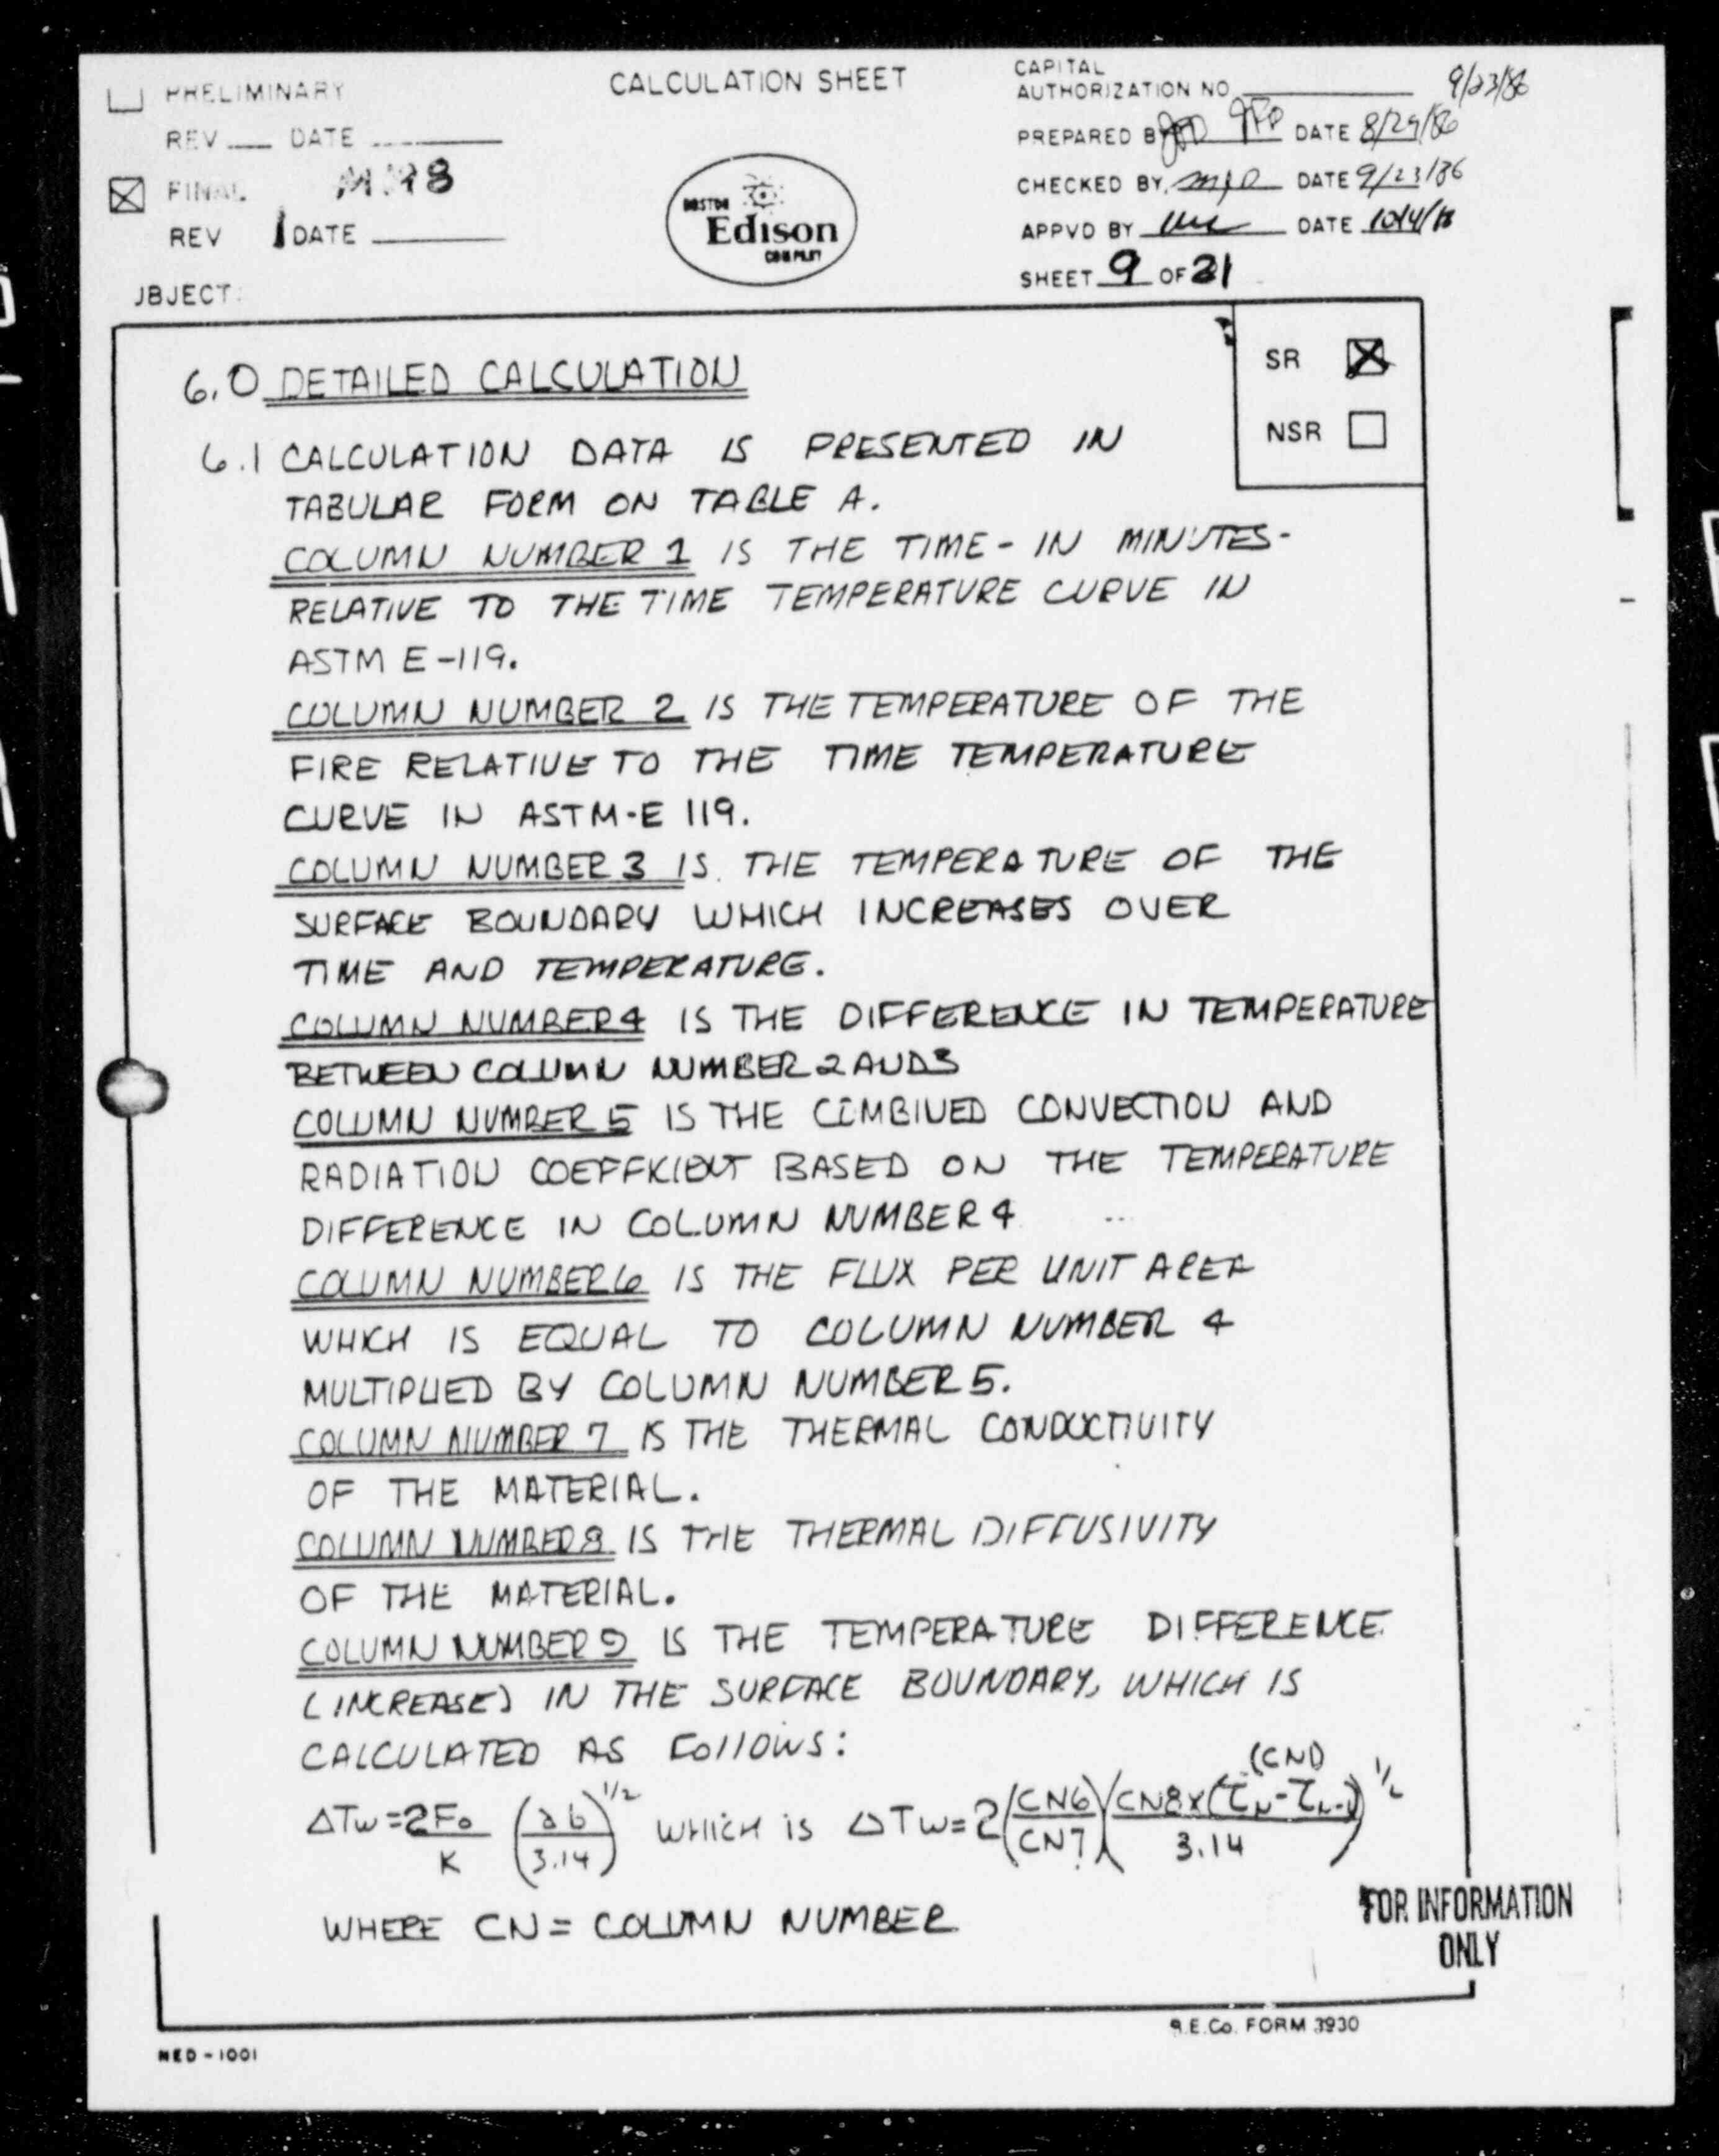 PRELIMINARY
REV DATE
FINAL
REV 1 DATE
CALCULATION SHEET
BOSTON
Edison
COMPANY
CAPITAL
AUTHORIZATION NO. 9/23/86
PREPARED BY DATE 8/29/86
CHECKED BY DATE 9/23/86
APPVD BY DATE
SHEET 9 OF 21
JBJECT:
SR
NSR
6.0 DETAILED CALCULATION
6.1 CALCULATION DATA IS PRESENTED IN
TABULAR FORM ON TABLE A.
COLUMN NUMBER 1 IS THE TIME - IN MINUTES-
RELATIVE TO THE TIME TEMPERATURE CURVE IN
ASTM E-119.
COLUMN NUMBER 2 IS THE TEMPERATURE OF THE
FIRE RELATIVE TO THE TIME TEMPERATURE
CURVE IN ASTM-E 119.
COLUMN NUMBER 3 IS THE TEMPERATURE OF THE
SURFACE BOUNDARY WHICH INCREASES OVER
TIME AND TEMPERATURE.
COLUMN NUMBER 4 IS THE DIFFERENCE IN TEMPERATURE
BETWEEN COLUMN NUMBER 2 AND 3
COLUMN NUMBER 5 IS THE COMBINED CONVECTION AND
RADIATION COEFFICIENT BASED ON THE TEMPERATURE
DIFFERENCE IN COLUMN NUMBER 4
COLUMN NUMBER 6 IS THE FLUX PER UNIT AREA
WHICH IS EQUAL TO COLUMN NUMBER 4
MULTIPLIED BY COLUMN NUMBER 5.
COLUMN NUMBER 7 IS THE THERMAL CONDUCTIVITY
OF THE MATERIAL.
COLUMN NUMBER 8 IS THE THERMAL DIFFUSIVITY
OF THE MATERIAL.
COLUMN NUMBER 9 IS THE TEMPERATURE DIFFERENCE
(INCREASE) IN THE SURFACE BOUNDARY, WHICH IS
CALCULATED AS FOLLOWS:
ΔTw = 2Fo/K (ab/3.14)^1/2 WHICH IS ΔTw = 2(CN6/CN7)(CN8x(τN-τN-1)/3.14)^1/2 (CN1)
WHERE CN = COLUMN NUMBER
FOR INFORMATION
ONLY
B.E.Co. FORM 3930
NED-1001